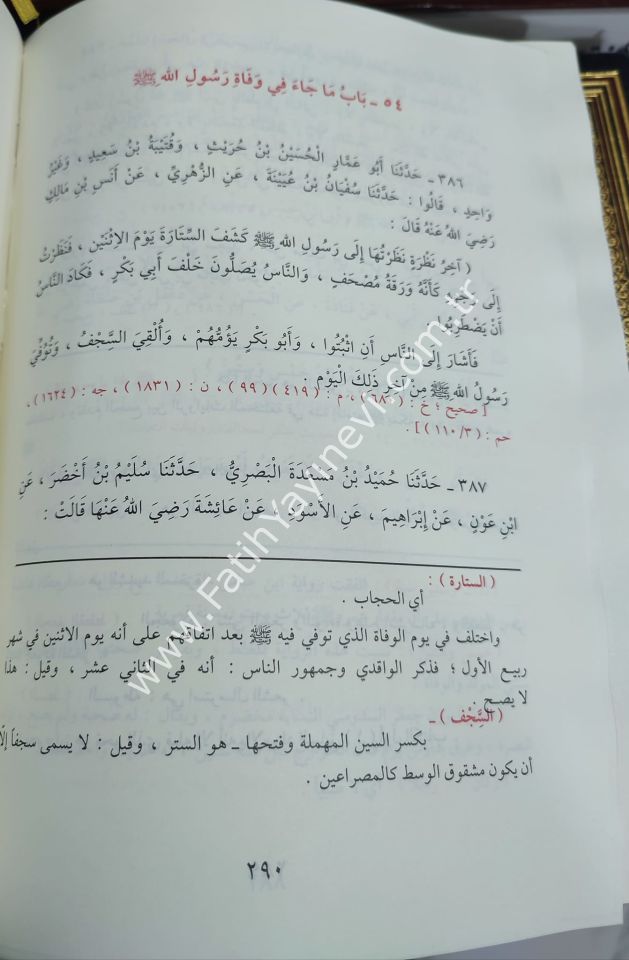 ٥٤ ـ بَابُ مَا جَاءَ فِي وَفَاةِ رَسُولِ اللهِ ﷺ
٣٨٦ ـ حَدَّثَنَا أَبُو عَمَّارٍ الْحُسَيْنُ بْنُ حُرَيْثٍ ، وَقُتَيْبَةُ بْنُ سَعِيدٍ ، وَغَيْرُ
وَاحِدٍ ، قَالُوا : حَدَّثَنَا سُفْيَانُ بْنُ عُيَيْنَةَ ، عَنِ الزُّهْرِيِّ ، عَنْ أَنَسِ بْنِ مَالِكٍ
رَضِيَ اللهُ عَنْهُ قَالَ :
( آخِرُ نَظْرَةٍ نَظَرْتُهَا إِلَى رَسُولِ اللهِ ﷺ كَشَفَ السِّتَارَةَ يَوْمَ الِاثْنَيْنِ ، فَنَظَرْتُ
إِلَى وَجْهِهِ كَأَنَّهُ وَرَقَةُ مُصْحَفٍ ، وَالنَّاسُ يُصَلُّونَ خَلْفَ أَبِي بَكْرٍ ، فَكَادَ النَّاسُ
أَنْ يَضْطَرِبُوا
فَأَشَارَ إِلَى النَّاسِ أَنِ اثْبُتُوا ، وَأَبُو بَكْرٍ يَؤُمُّهُمْ ، وَأُلْقِيَ السَّجْفُ ، وَتُوُفِّيَ
رَسُولُ اللهِ ﷺ مِنْ آخِرِ ذَلِكَ الْيَوْمِ .
[ صحيح ؛ خ : (٦٨٠) ، م : (٤١٩) (٩٩) ، ن : (١٨٣١) ، جه : (١٦٢٤) ،
حم : (٣/ ١١٠) ] .
٣٨٧ ـ حَدَّثَنَا حُمَيْدُ بْنُ مَسْعَدَةَ الْبَصْرِيُّ ، حَدَّثَنَا سُلَيْمُ بْنُ أَخْضَرَ ، عَنِ
ابْنِ عَوْنٍ ، عَنْ إِبْرَاهِيمَ ، عَنِ الْأَسْوَدِ ، عَنْ عَائِشَةَ رَضِيَ اللهُ عَنْهَا قَالَتْ :
(الستارة) :
أي الحجاب .
واختلف في يوم الوفاة الذي توفي فيه ﷺ بعد اتفاقهم على أنه يوم الاثنين في شهر
ربيع الأول ؛ فذكر الواقدي وجمهور الناس : أنه في الثاني عشر ، وقيل : هذا
لا يصح .
(السِّجْف) ـ
بكسر السين المهملة وفتحها ـ هو الستر ، وقيل : لا يسمى سجفاً إلَّا
أن يكون مشقوق الوسط كالمصراعين .
٢٩٠
www.FatihYayinevi.com.tr